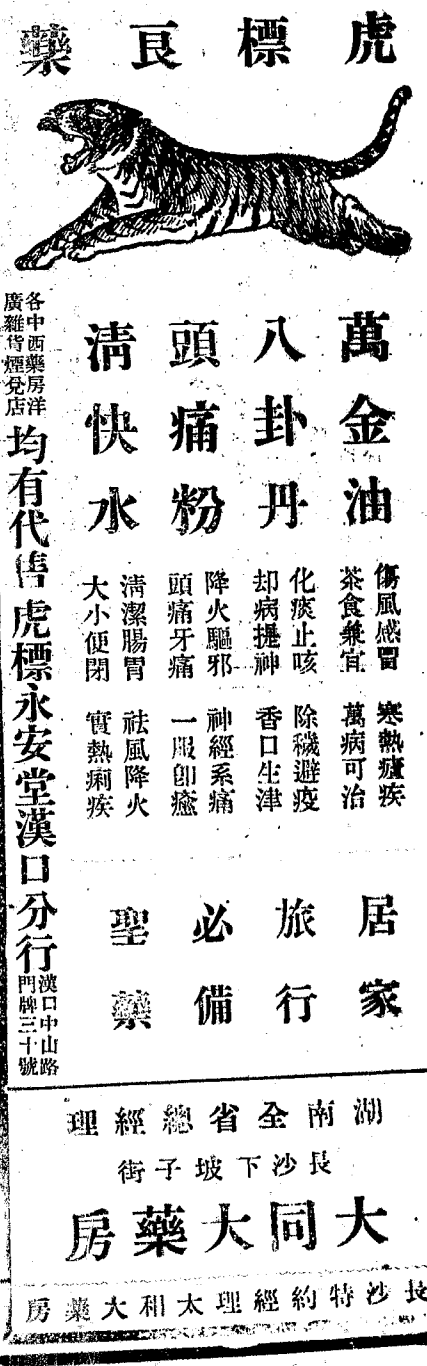 虎標良藥
萬金油
傷風感冒 寒熱瘧疾
茶食兼宜 萬病可治
八卦丹
化痰止咳 除穢避疫
却病提神 香口生津
頭痛粉
降火驅邪 神經系痛
頭痛牙痛 一服卽癒
清快水
清潔腸胃 祛風降火
大小便閉 實熱痢疾
居家
旅行
必備
聖藥
各中西藥房洋
廣雜貨煙兌店
均有代售虎標永安堂漢口分行
漢口中山路
門牌三十號
湖南全省總經理
長沙下坡子街
大同大藥房
長沙特約經理太和大藥房